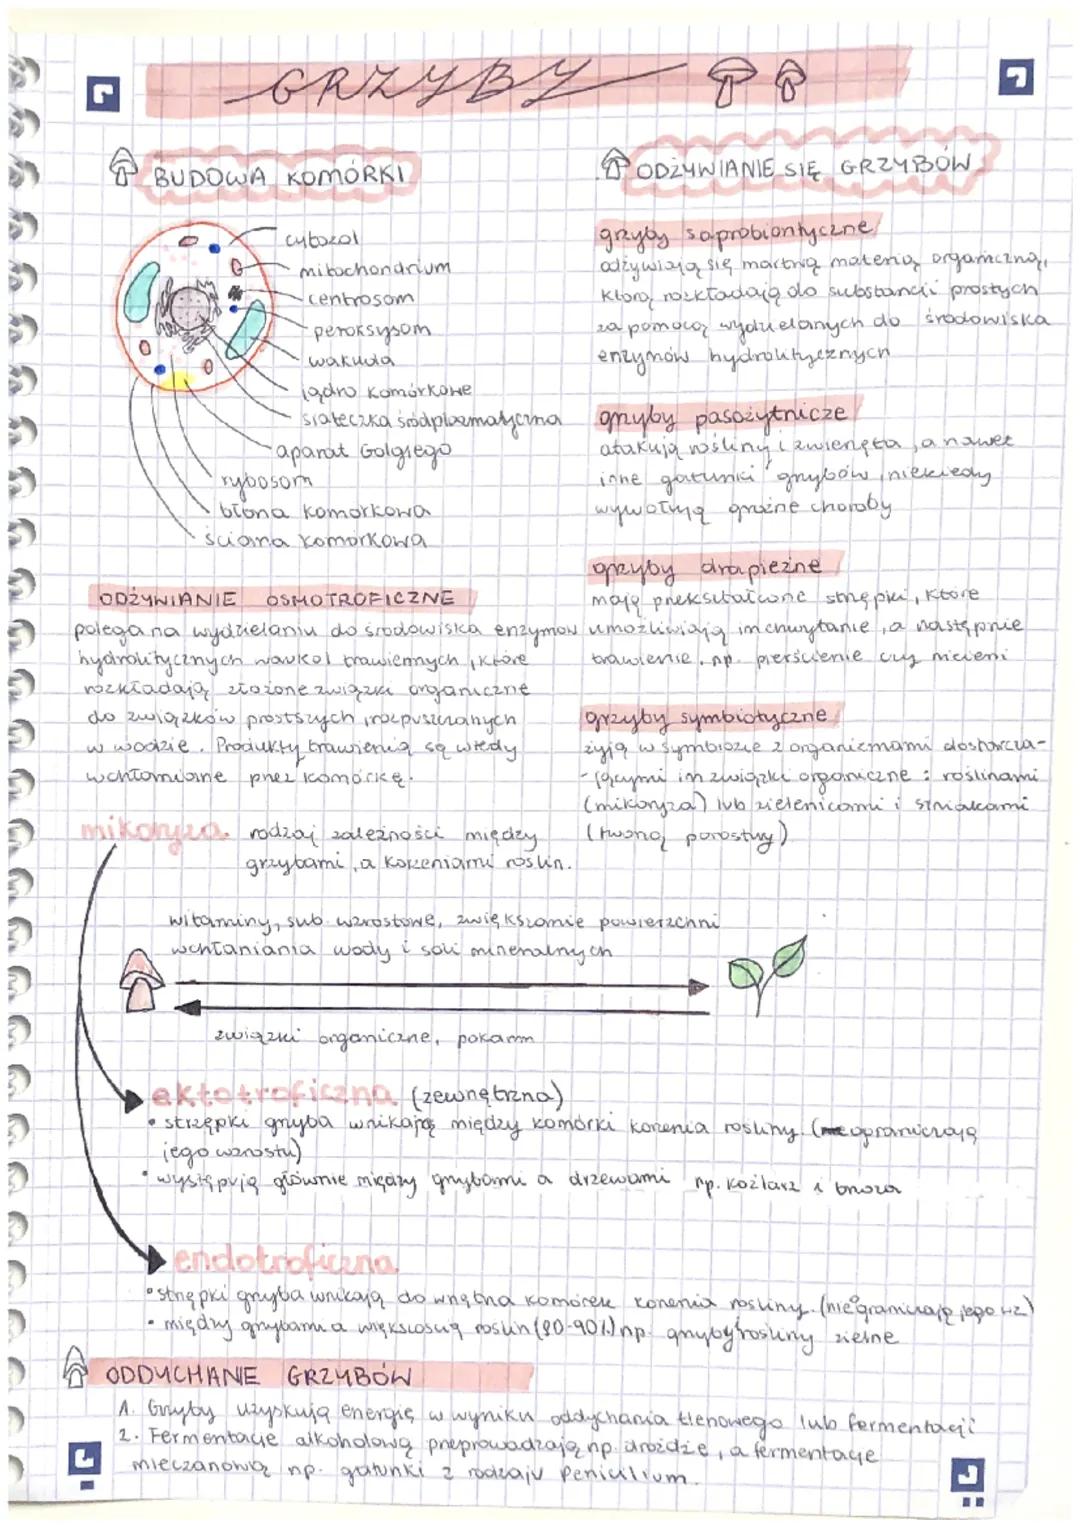 GRZYBY
BUDOWA KOMÓRKI
cytozol
mitochondrium
centrosom
peroksysom
wakuola
jądro komórkowe
siateczka śródplazmatyczna
aparat Golgiego
rybosom
błona komórkowa
ściana komórkowa
ODŻYWIANIE OSMOTROFICZNE
polega na wydzielaniu do środowiska enzymów
hydrolitycznych trawiennych, które
rozkładają złożone związki organiczne
do związków prostszych, rozpuszczanych
w wodzie. Produkty trawienia są wtedy
wchłaniane przez komórkę.
ODŻYWIANIE SIĘ GRZYBÓW
grzyby saprobiontyczne
odżywiają się martwą materią organiczną,
którą rozkładają do substancji prostych
za pomocą wydzielanych do środowiska
enzymów hydrolitycznych
grzyby pasożytnicze
atakują rośliny i zwierzęta, a nawet
inne gatunki grzybów, niekiedy
wywołują groźne choroby
grzyby drapieżne
mają przekształcone strzępki, które
umożliwiają im chwytanie, a następnie
trawienie, np. pierścienie czy nicieni
grzyby symbiotyczne
żyją w symbiozie z organizmami dostarcza-
-jącymi im związki organiczne: roślinami
(mikoryza) lub zielenicami i sinicami
(tworzą porosty)
mikoryza rodzaj zależności między
grzybami, a korzeniami roślin.
witaminy, sub. wzrostowe, zwiększanie powierzchni
wchłaniania wody i soli mineralnych
związki organiczne, pokarm
ektotroficzna (zewnętrzna)
• strzępki grzyba wnikają między komórki korzenia rośliny. (ograniczają
jego wzrostu)
• występują głównie między grzybami a drzewami np. koźlarz i brzoza
endotroficzna
• strzępki grzyba wnikają do wnętrza komórek korzenia rośliny. (nie ograniczają jego wz.)
• między grzybami a większością roślin (80-90%) np. grzyby rośliny zielne
ODDYCHANIE GRZYBÓW
1. Grzyby uzyskują energię w wyniku oddychania tlenowego lub fermentacji
2. Fermentację alkoholową przeprowadzają np. drożdże, a fermentację
mleczanową np. gatunki z rodzaju Penicilium.